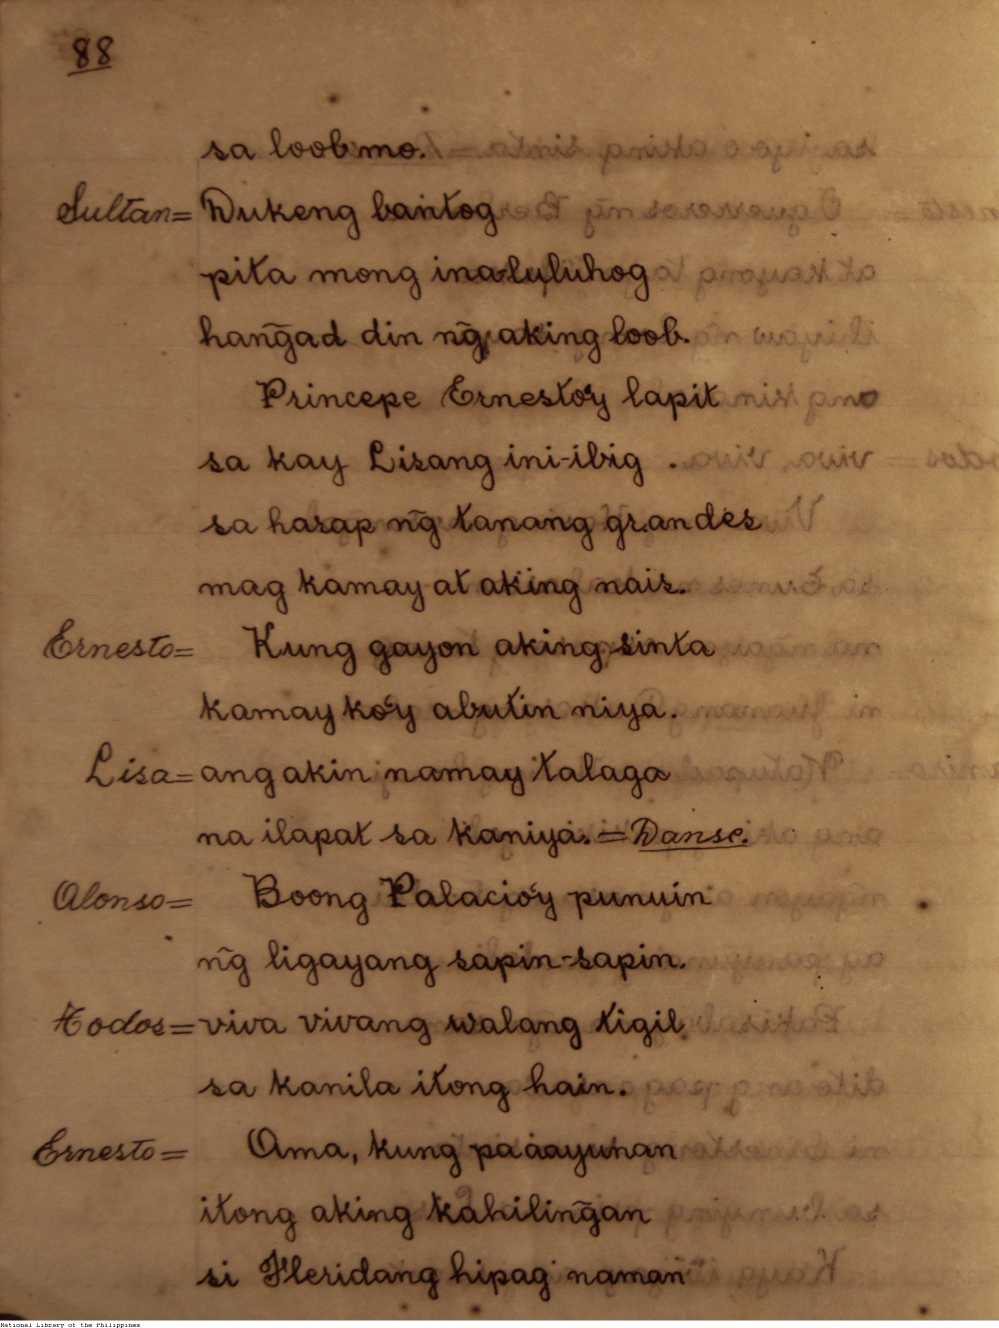 88
sa loob mo.
Sultan= Dukeng bantog
pita mong inaluluhog
han͠gad din n͠g aking loob.
Princepe Ernesto'y lapit
sa kay Lisang ini-ibig .
sa harap n͠g tanang grandes
mag kamay at aking nais.
Ernesto= Kung gayon aking sinta
kamay ko'y abutin niya.
Lisa= ang akin namay talaga
na ilapat sa kaniya. = Danse.
Alonso= Boong Palacio'y punuin
n͠g ligayang sapin-sapin.
Todos= viva vivang walang tigil
sa kanila itong hain.
Ernesto= Ama, kung pa aayunan
itong aking kahilin͠gan
si Fleridang hipag naman
National Library of the Philippines